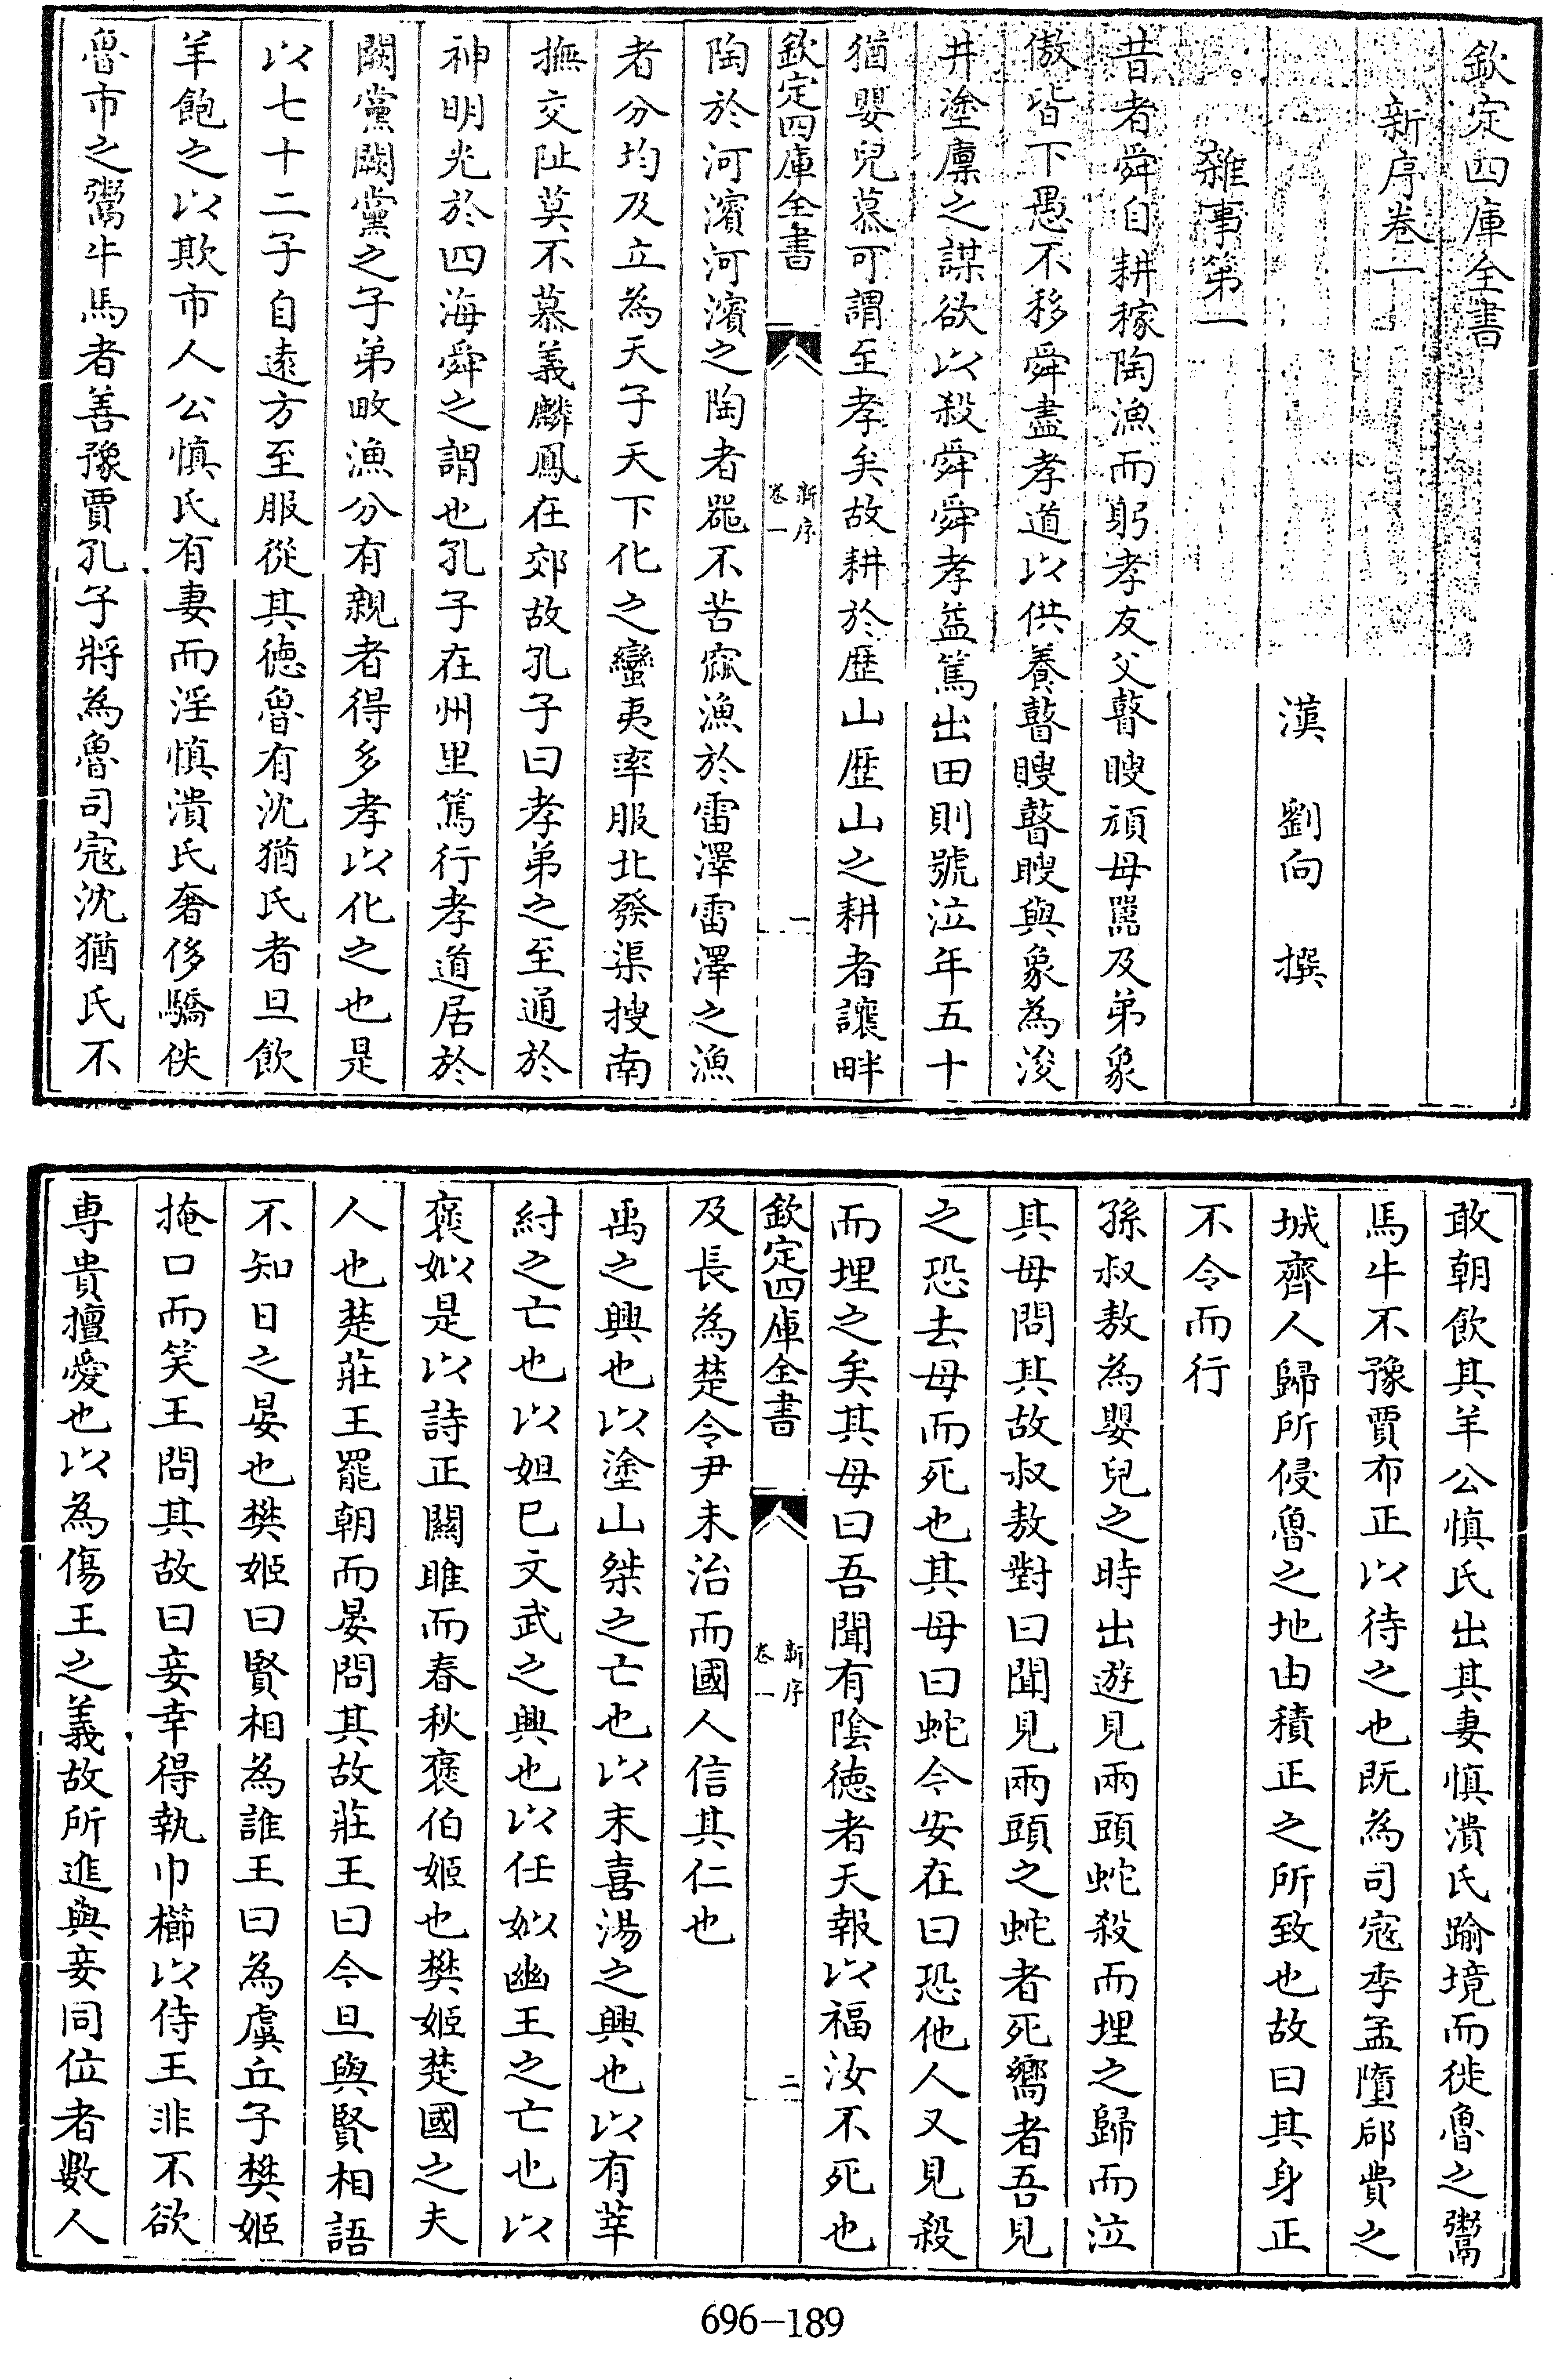 欽定四庫全書
新序卷一
漢劉向撰
雜事第一
昔者舜自耕稼陶漁而躬孝友父瞽瞍頑母嚚及弟象
傲皆下愚不移舜盡孝道以供養瞽瞍瞽瞍與象為浚
井塗廩之謀欲以殺舜舜孝益篤出田則號泣年五十
猶嬰兒慕可謂至孝矣故耕於歴山歴山之耕者讓畔
欽定四庫全書
新序
卷一
一
陶於河濱河濱之陶者器不苦窳漁於雷澤雷澤之漁
者分均及立為天子天下化之蠻夷率服北發渠搜南
撫交阯莫不慕義麟鳳在郊故孔子曰孝弟之至通於
神明光於四海舜之謂也孔子在州里篤行孝道居於
闕黨闕黨之子弟畋漁分有親者得多孝以化之也是
以七十二子自遠方至服從其徳魯有沈猶氏者旦飲
羊飽之以欺市人公慎氏有妻而淫慎潰氏奢侈驕佚
魯市之鬻牛馬者善豫賈孔子將為魯司寇沈猶氏不
敢朝飲其羊公慎氏出其妻慎潰氏踰境而徙魯之鬻
馬牛不豫賈布正以待之也既為司寇季孟墮郈費之
城齊人歸所侵魯之地由積正之所致也故曰其身正
不令而行
孫叔敖為嬰兒之時出遊見兩頭蛇殺而埋之歸而泣
其母問其故叔敖對曰聞見兩頭之蛇者死嚮者吾見
之恐去母而死也其母曰蛇今安在曰恐他人又見殺
而埋之矣其母曰吾聞有陰徳者天報以福汝不死也
欽定四庫全書
新序
卷一
二
及長為楚令尹未治而國人信其仁也
禹之興也以塗山桀之亡也以末喜湯之興也以有莘
紂之亡也以妲巳文武之興也以任姒幽王之亡也以
褒姒是以詩正闗雎而春秋褒伯姬也樊姬楚國之夫
人也楚莊王罷朝而晏問其故莊王曰今旦與賢相語
不知日之晏也樊姬曰賢相為誰王曰為虞丘子樊姬
掩口而笑王問其故曰妾幸得執巾櫛以侍王非不欲
専貴擅愛也以為傷王之義故所進與妾同位者數人
696-189